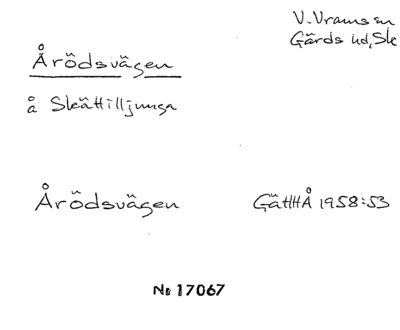 V. Vram sn
Gärds hd, Sk
Årödsvägen
å Skättilljunga
Årödsvägen GäHHÅ 1958:53
No 17067